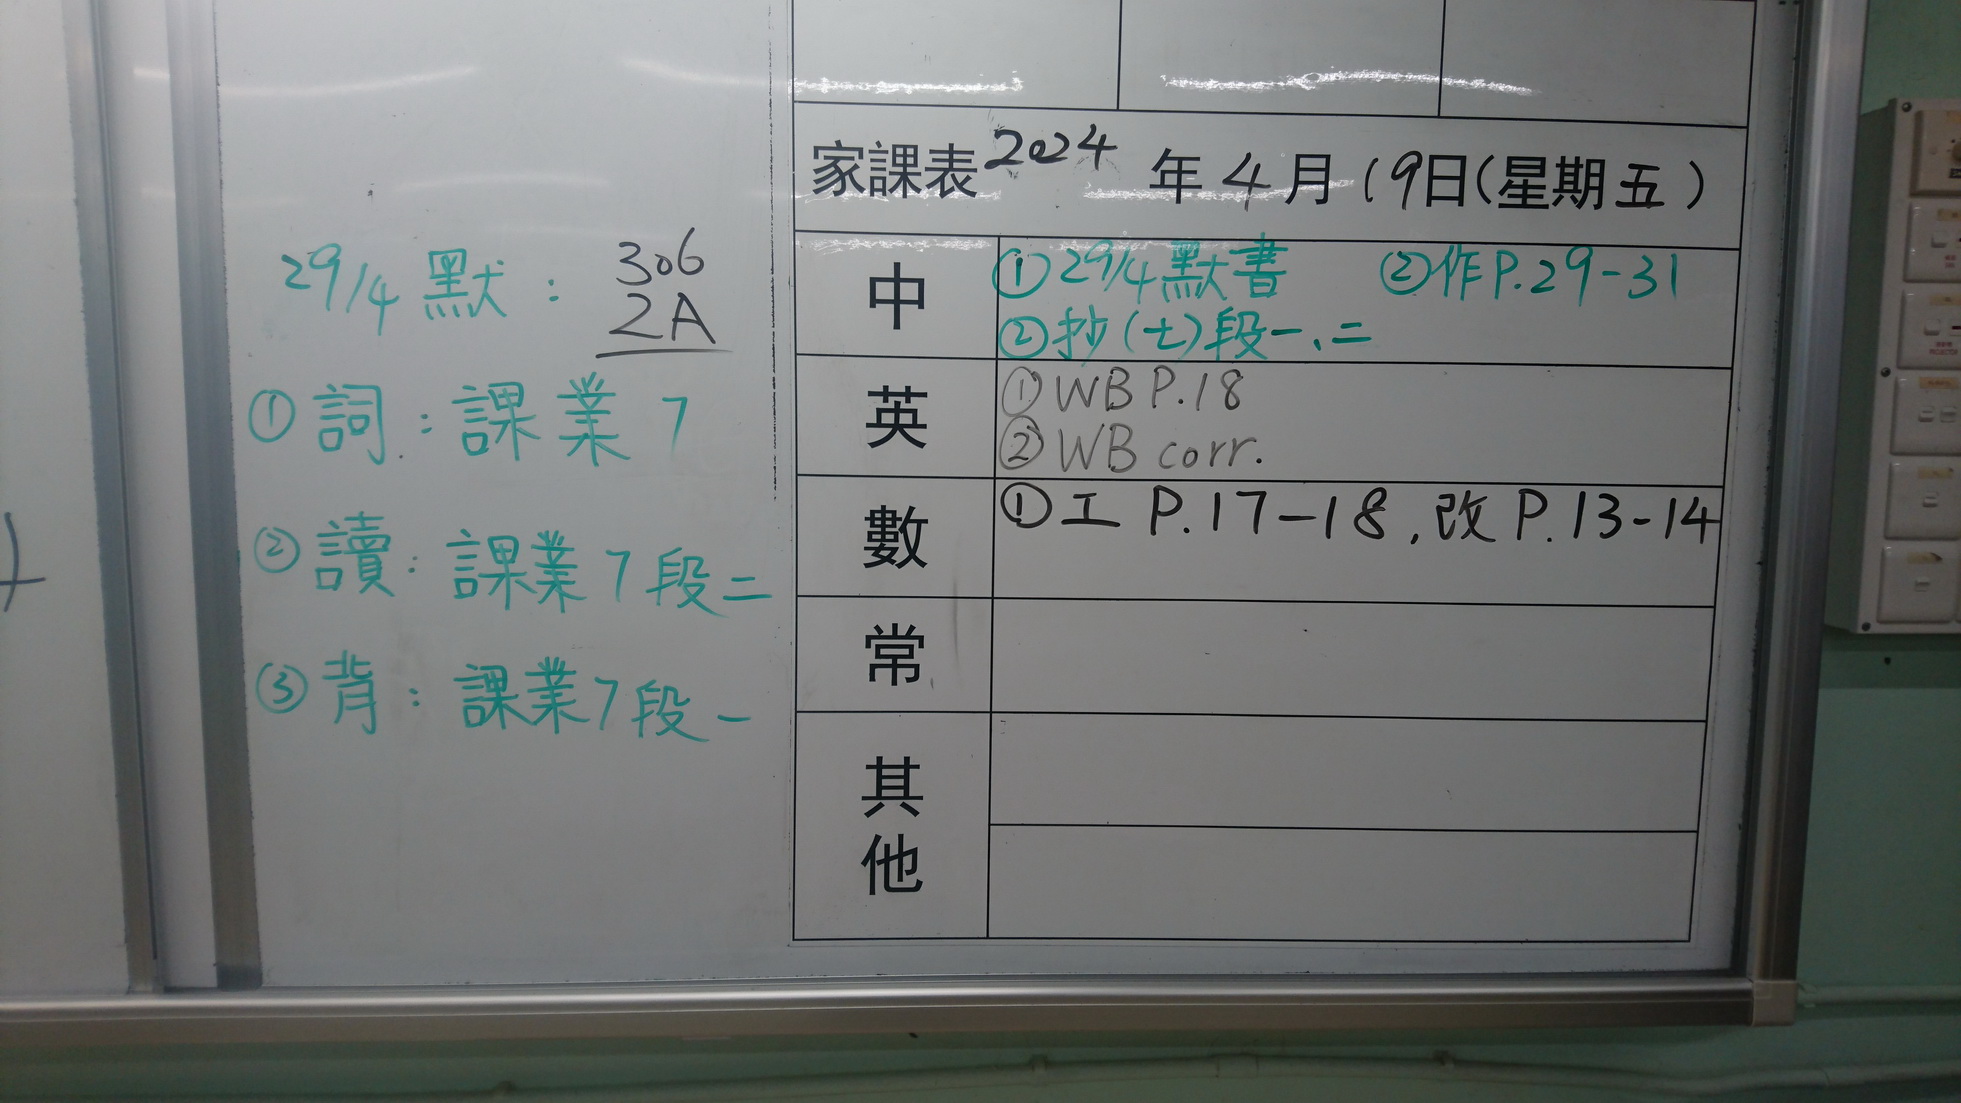 29/4 默：
306
2A
① 詞：課業 7
② 讀：課業 7 段二
③ 背：課業 7 段一
家課表 2024 年 4 月 19 日(星期五)
中
① 29/4 默書 ② 作 P.29-31
② 抄(七)段一、二
英
① WB P.18
② WB corr.
數
① 工 P.17-18, 改 P.13-14
常
其他